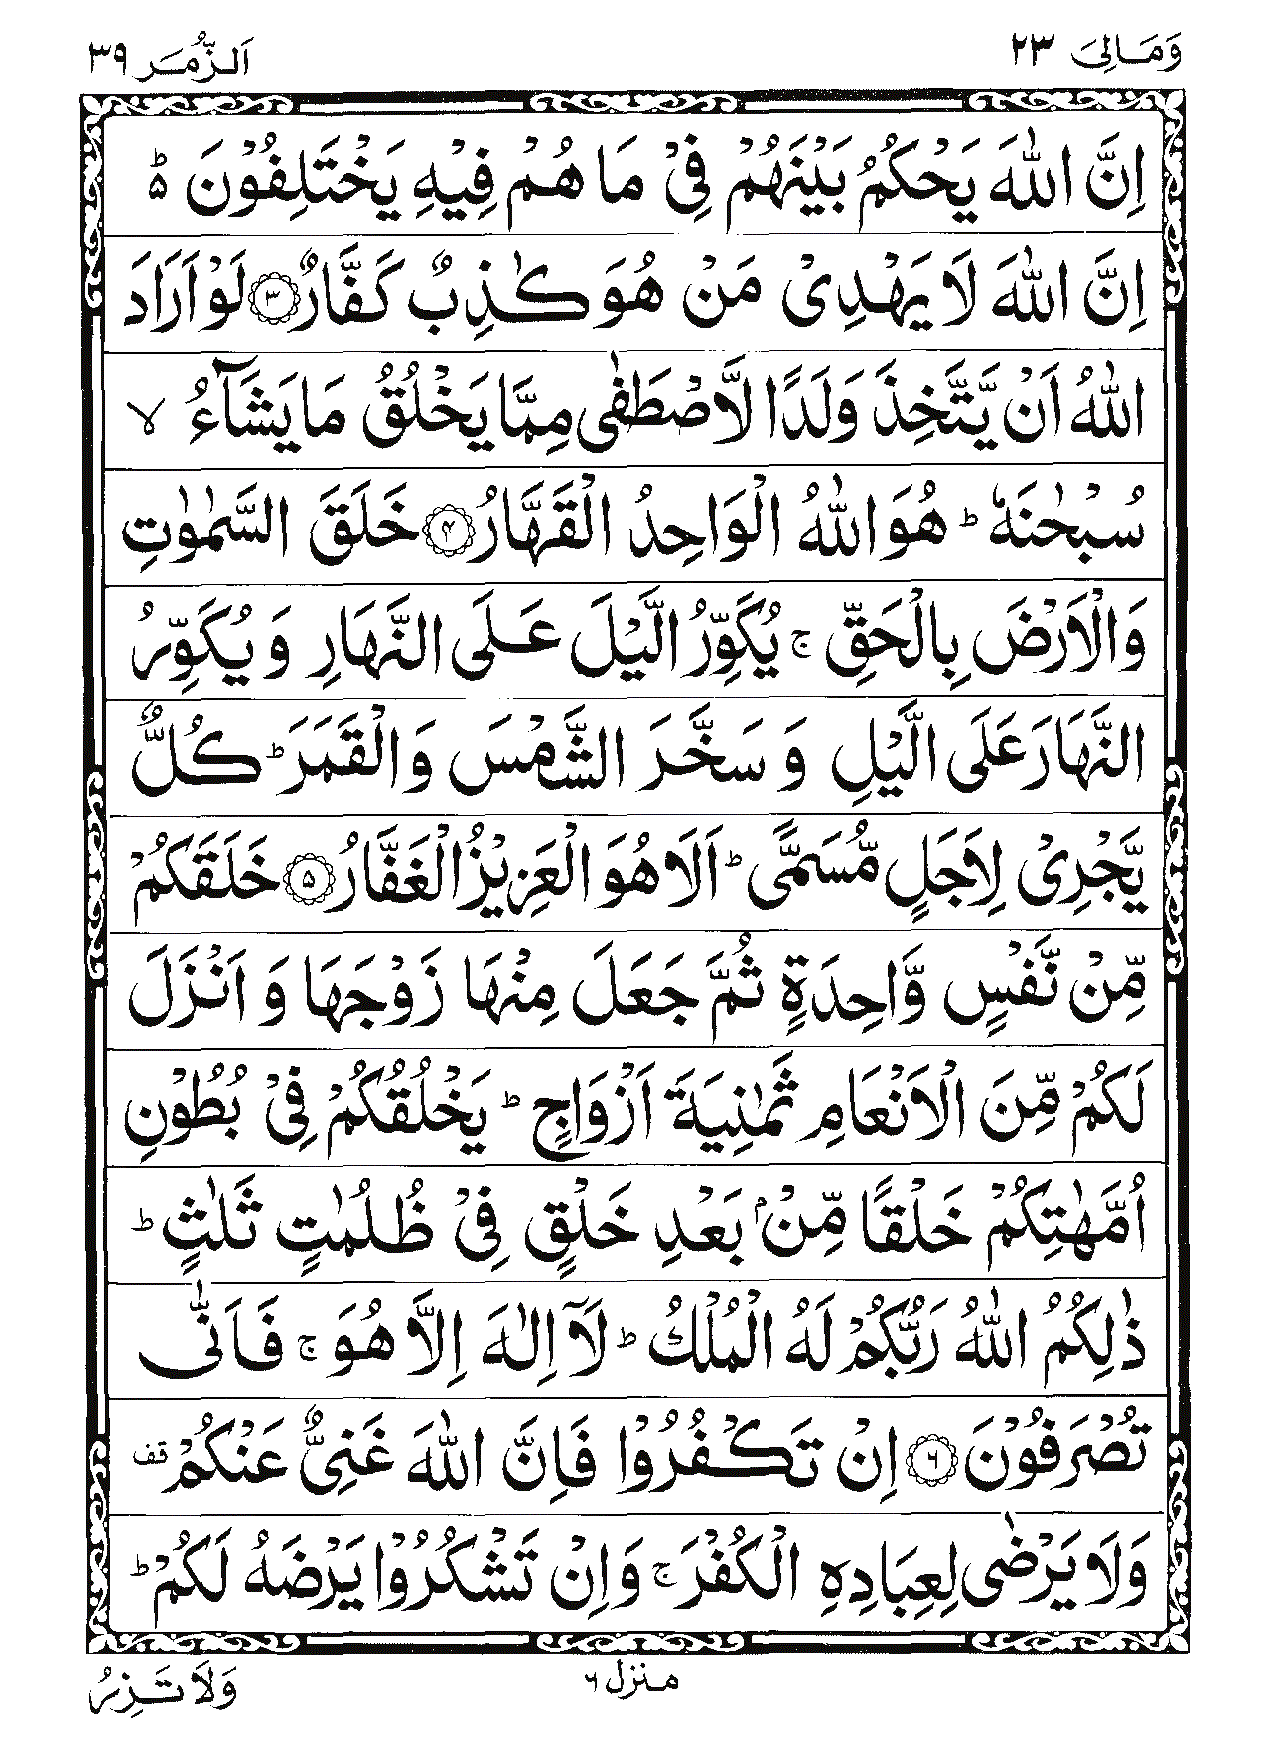 وَمَالِیَ ٢٣
اَلزُّمَر ٣٩
اِنَّ اللّٰهَ يَحْكُمُ بَيْنَهُمْ فِیْ مَا هُمْ فِيْهِ يَخْتَلِفُوْنَ ؕ۵
اِنَّ اللّٰهَ لَا يَهْدِیْ مَنْ هُوَ كٰذِبٌ كَفَّارٌ ﴿۳﴾ لَوْ اَرَادَ
اللّٰهُ اَنْ يَّتَّخِذَ وَلَدًا لَّاصْطَفٰى مِمَّا يَخْلُقُ مَا يَشَآءُ ۙ
سُبْحٰنَهٗ ؕ هُوَ اللّٰهُ الْوَاحِدُ الْقَهَّارُ ﴿۴﴾ خَلَقَ السَّمٰوٰتِ
وَالْاَرْضَ بِالْحَقِّ ۚ يُكَوِّرُ الَّيْلَ عَلَى النَّهَارِ وَ يُكَوِّرُ
النَّهَارَ عَلَى الَّيْلِ وَ سَخَّرَ الشَّمْسَ وَ الْقَمَرَ ؕ كُلٌّ
يَّجْرِیْ لِاَجَلٍ مُّسَمًّى ؕ اَلَا هُوَ الْعَزِيْزُ الْغَفَّارُ ﴿۵﴾ خَلَقَكُمْ
مِّنْ نَّفْسٍ وَّاحِدَةٍ ثُمَّ جَعَلَ مِنْهَا زَوْجَهَا وَ اَنْزَلَ
لَكُمْ مِّنَ الْاَنْعَامِ ثَمٰنِيَةَ اَزْوَاجٍ ؕ يَخْلُقُكُمْ فِیْ بُطُوْنِ
اُمَّهٰتِكُمْ خَلْقًا مِّنْۢ بَعْدِ خَلْقٍ فِیْ ظُلُمٰتٍ ثَلٰثٍ ؕ
ذٰلِكُمُ اللّٰهُ رَبُّكُمْ لَهُ الْمُلْكُ ؕ لَاۤ اِلٰهَ اِلَّا هُوَ ۚ فَاَنّٰى
تُصْرَفُوْنَ ﴿۶﴾ اِنْ تَكْفُرُوْا فَاِنَّ اللّٰهَ غَنِیٌّ عَنْكُمْ قف
وَلَا يَرْضٰى لِعِبَادِهِ الْكُفْرَ ۚ وَاِنْ تَشْكُرُوْا يَرْضَهُ لَكُمْ ؕ
منزل ۶
وَلَا تَزِرُ